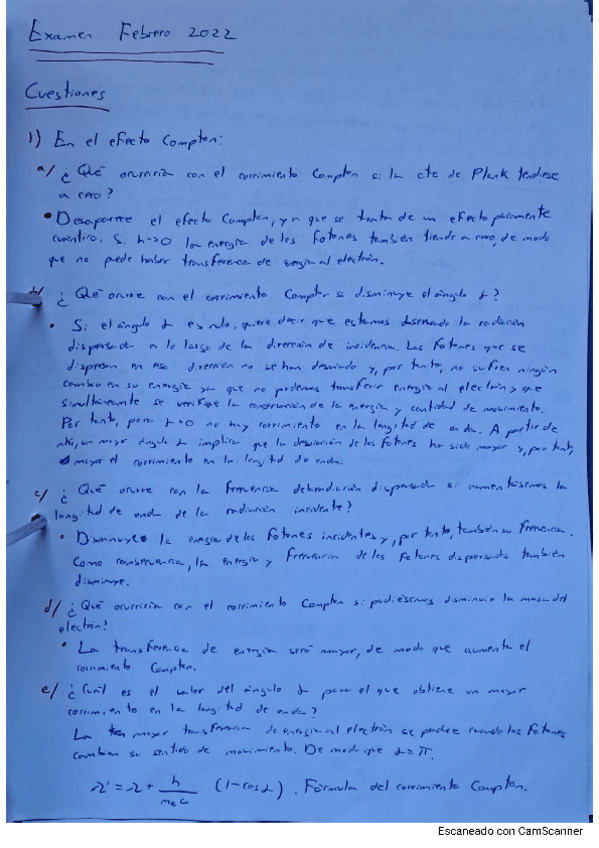 Examen Febrero 2022
Cuestiones
1) En el efecto Compton:
a/ ¿Qué ocurriría con el corrimiento Compton si la cte de Plank tendiese
a cero?
• Desaparece el efecto Compton, ya que se trata de un efecto puramente
cuántico. Si h→0 la energía de los fotones también tiende a cero, de modo
que no puede haber transferencia de energía al electrón.
b/ ¿Qué ocurre con el corrimiento Compton si disminuye el ángulo α?
• Si el ángulo α es nulo, quiere decir que estamos observando la radiación
dispersada a lo largo de la dirección de incidencia. Los fotones que se
dispersan en esa dirección no se han desviado y, por tanto, no sufren ningún
cambio en su energía ya que no podemos transferir energía al electrón y que
simultáneamente se verifique la conservación de la energía y cantidad de movimiento.
Por tanto, para α=0 no hay corrimiento en la longitud de onda. A partir de
ahí, un mayor ángulo α implica que la desviación de los fotones ha sido mayor y, por tanto,
mayor el corrimiento en la longitud de onda.
c/ ¿Qué ocurre con la frecuencia de la radiación dispersada si aumentásemos la
longitud de onda de la radiación incidente?
• Disminuye la energía de los fotones incidentes y, por tanto, también su frecuencia.
Como consecuencia, la energía y frecuencia de los fotones dispersados también
disminuye.
d/ ¿Qué ocurriría con el corrimiento Compton si pudiésemos disminuir la masa del
electrón?
• La transferencia de energía será mayor, de modo que aumente el
corrimiento Compton.
e/ ¿Cuál es el valor del ángulo α para el que obtiene un mayor
corrimiento en la longitud de onda?
La mayor transferencia de energía al electrón se produce cuando los fotones
cambian su sentido de movimiento. De modo que α=π.
λ' = λ + h/(mₑc) (1-cosα). Fórmula del corrimiento Compton.
Escaneado con CamScanner